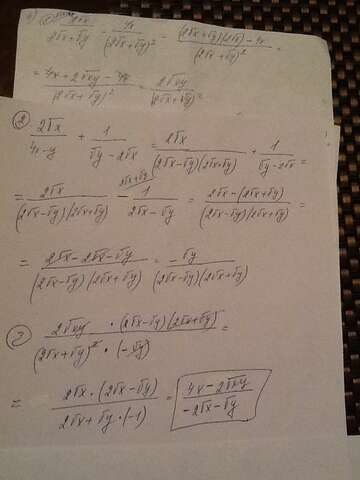 2√x / (2√x+√y) - 4x / (2√x+√y)² = ((2√x+√y)(2√x) - 4x) / (2√x+√y)² =
= (4x + 2√xy - 4x) / (2√x+√y)² = 2√xy / (2√x+√y)² =
② 2√x / (4x-y) + 1 / (√y-2√x) = 2√x / ((2√x-√y)(2√x+√y)) + 1 / (√y-2√x) =
= 2√x / ((2√x-√y)(2√x+√y)) - 1 / (2√x-√y) (2√x+√y = (2√x-(2√x+√y)) / ((2√x-√y)(2√x+√y)) =
= (2√x-2√x-√y) / ((2√x-√y)(2√x+√y)) = -√y / ((2√x-√y)(2√x+√y))
③ 2√xy · (2√x-√y)(2√x+√y) / ((2√x+√y)² · (-√y)) =
= 2√x · (2√x-√y) / (2√x+√y · (-1)) = (4x-2√xy) / (-2√x-√y)